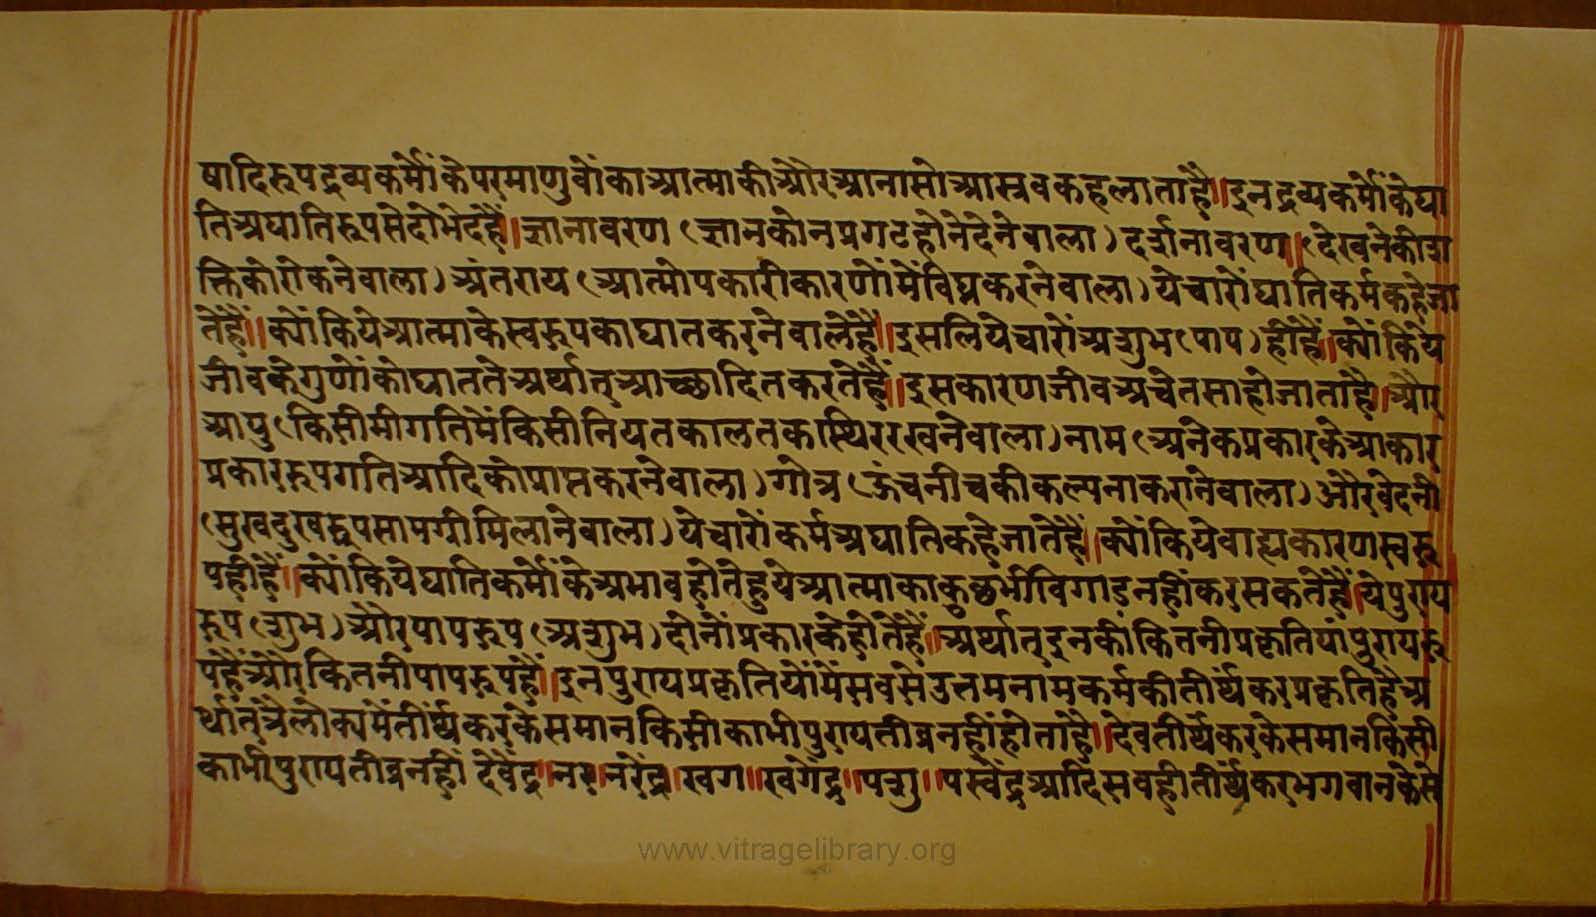 षादिरूपद्रव्यकर्मोंकेपरमाणुवोंकाआत्माकीऔरआनासोआस्रवकहलाताहै॥इनद्रव्यकर्मोंकेघा
तिअघातिरूपसेदोभेदहैं॥ज्ञानावरण(ज्ञानकोनप्रगटहोनेदेनेवाला)दर्शनावरण॥(देखनेकीश
क्तिकोरोकनेवाला)अंतराय(आत्मोपकारीकारणोंमेंविघ्नकरनेवाला)येचारोंघातिकर्मकहेजा
तेहैं॥क्योंकियेआत्माकेस्वरूपकाघातकरनेवालेहैं॥इसलियेचारोंअशुभ(पाप)हींहैं॥क्योंकिये
जीवकेगुणोंकोघाततेअर्थात्आच्छादितकरतेहैं॥इसकारणजीवअचेतसाहोजाताहै॥और
आपु(किसीमीगतिमेंकिसीनियतकालतकास्थिररखनेवाला)नाम(अनेकप्रकारकेआकार
प्रकाररूपगतिआदिकोप्राप्तकरनेवाला)गोत्र(ऊंचनीचकीकल्पनाकरानेवाला)औरवेदनी
(सुखदुखरूपसामग्रीमिलानेवाला)येचारोंकर्मअघातिकहेजातेहैं॥क्योंकियेवाह्यकारणस्वरू
पहीहैं॥क्योंकियेघातिकर्मोंकेअभावहोतेहुयेआत्माकाकुछभीविगाडनहींकरसकतेहैं॥येपुराय
रूप(शुभ)औरपापरूप(अशुभ)दोनोंप्रकारकेहोतेहैं॥अर्थात्इनकींकितनीप्रकृतियांपुरायरू
पहैंऔरकितनीपापरूपहैं॥इनपुरायप्रकृतियोंमेंसवसेउत्तमनामकर्मकीतीर्थंकरप्रकृतिहैअ
र्थात्त्रैलोक्यमेंतीर्थंकरकेसमानकिसीकाभीपुरायतीव्रनहींहोताहै॥देवतीर्थंकरकेसमानकिसी
काभीपुरायतीव्रनहीं देवेंद्र॥नर॥नरेंद्र॥खग॥खगेंद्र॥पशु॥पस्वेंद्रआदिसवहीतीर्थंकरभगवानकेस
www.vitragelibrary.org